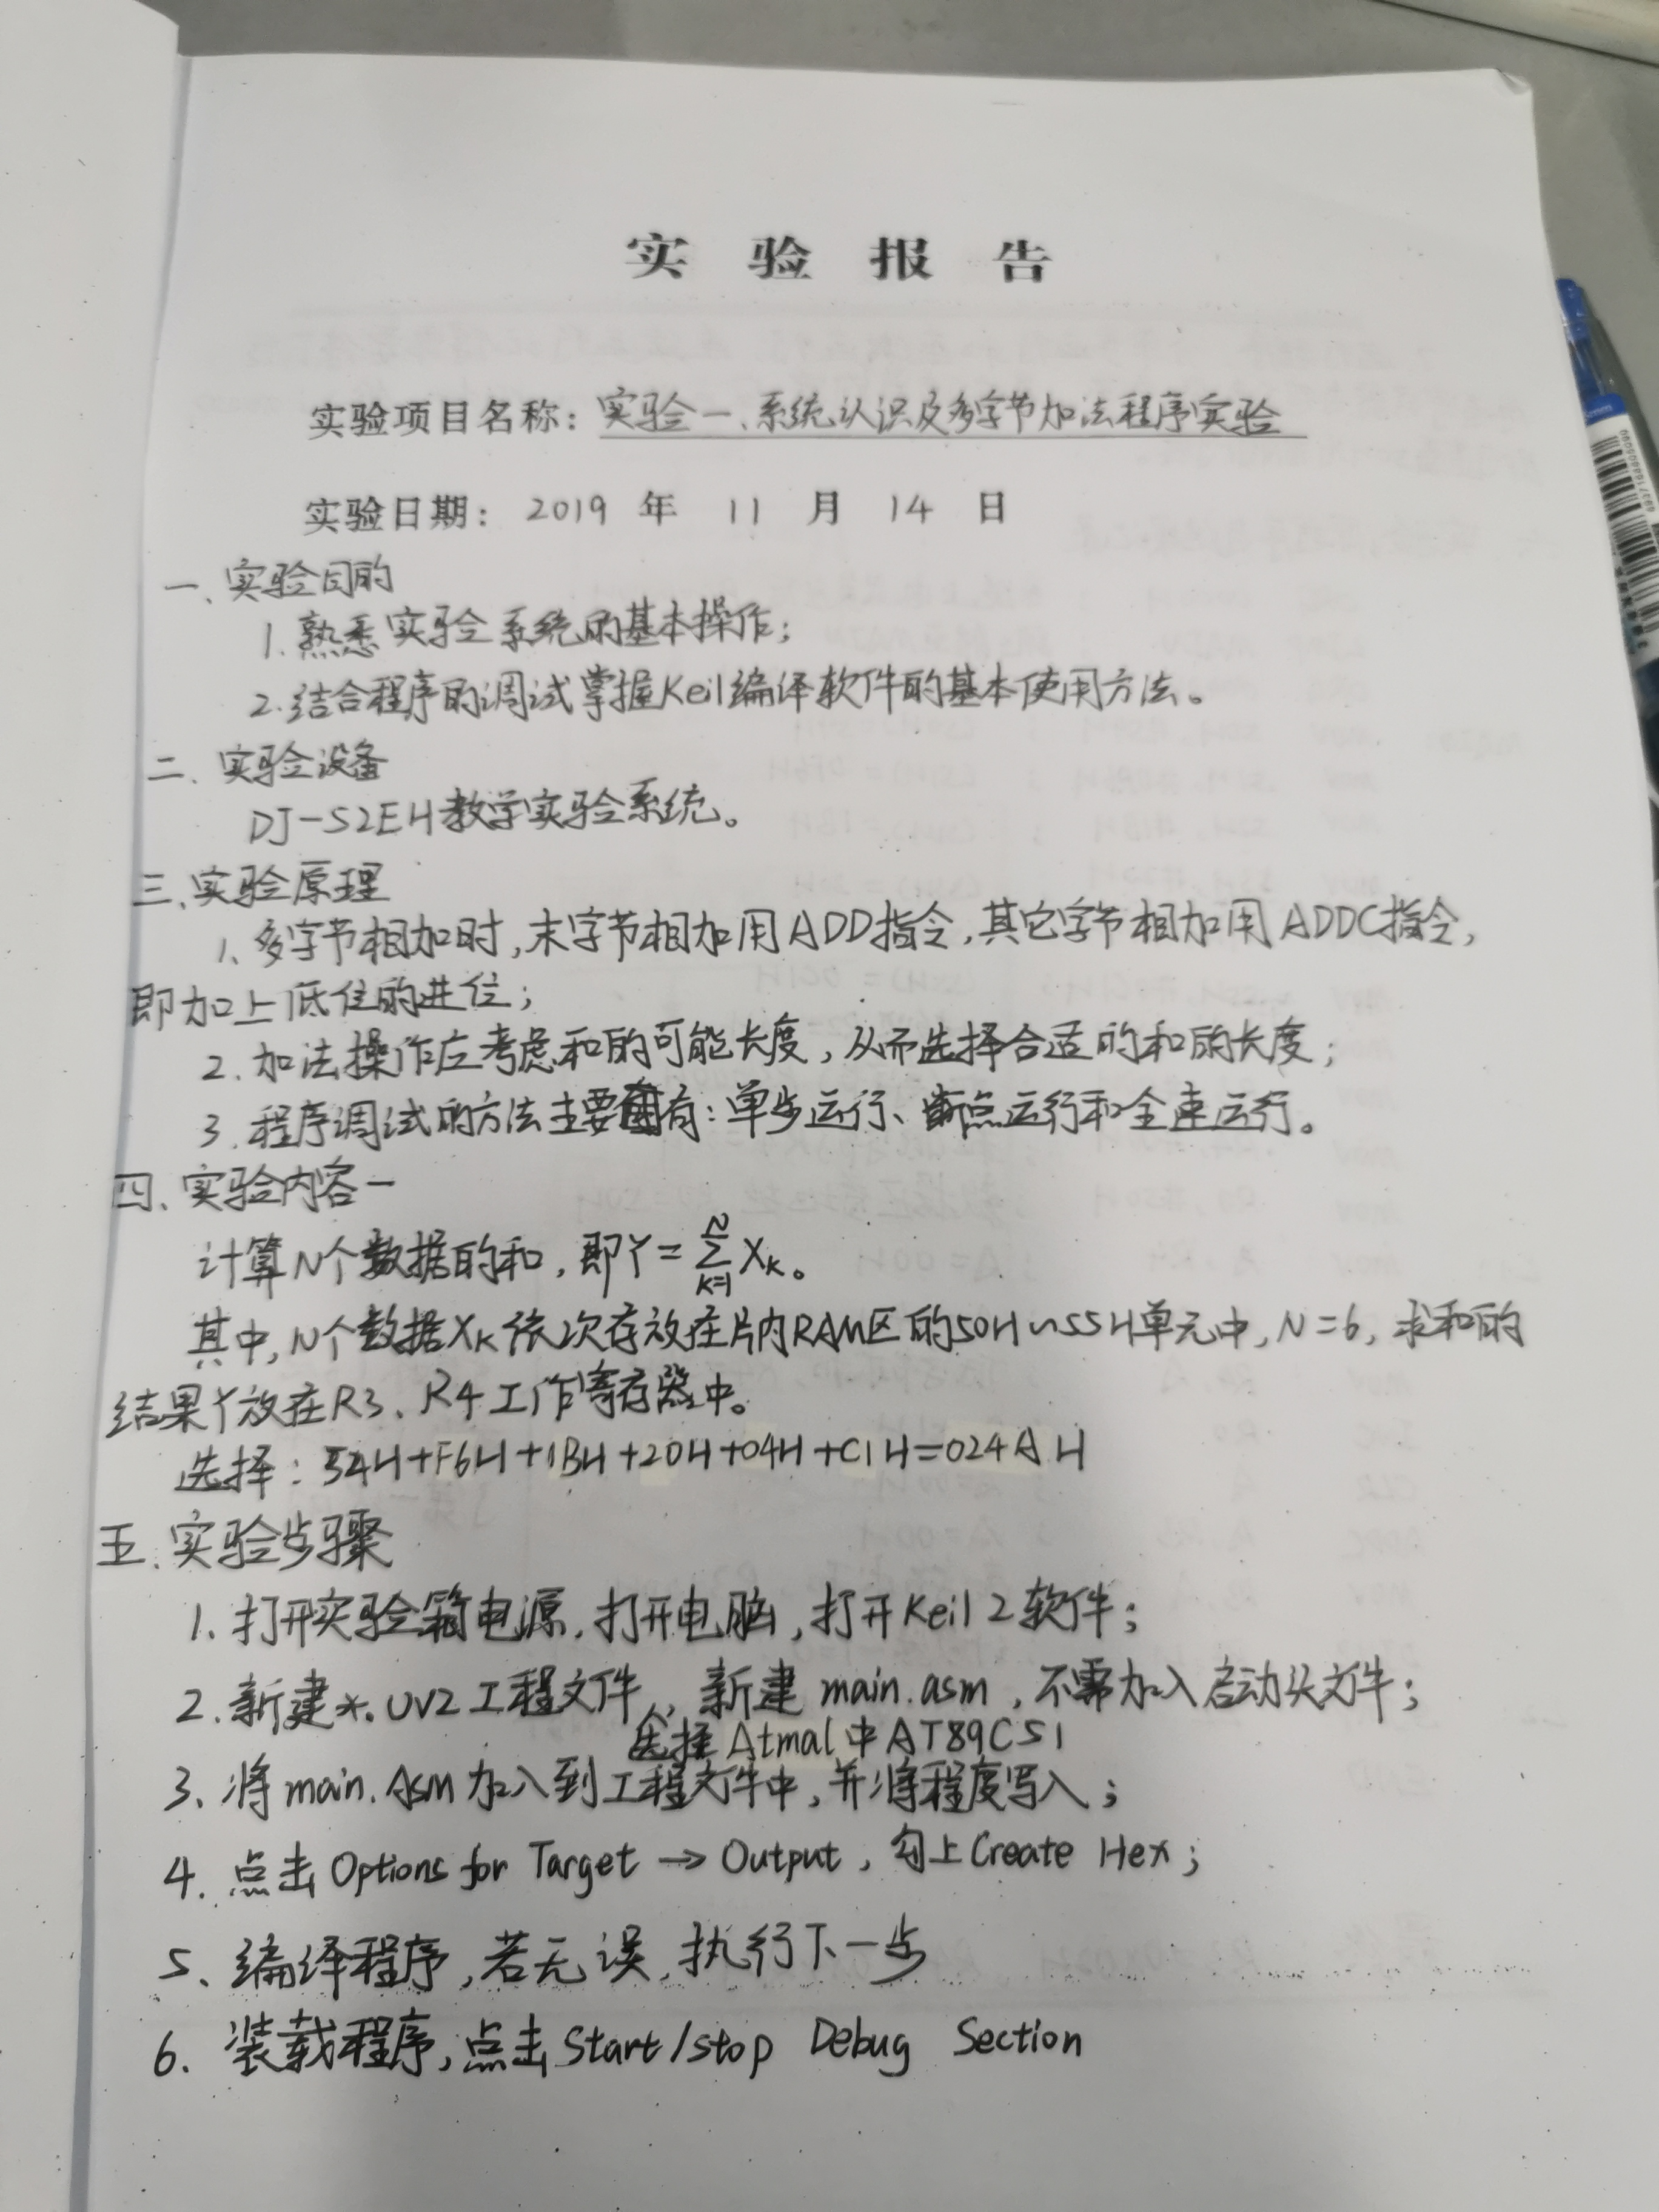 实验报告
实验项目名称：实验一、系统认识及多字节加法程序实验
实验日期：2019 年 11 月 14 日
一、实验目的
1.熟悉实验系统的基本操作；
2.结合程序的调试掌握Keil编译软件的基本使用方法。
二、实验设备
DJ-S2EH教学实验系统。
三、实验原理
1、多字节相加时，末字节相加用ADD指令，其它字节相加用ADDC指令，
即加上低位的进位；
2.加法操作应考虑和的可能长度，从而选择合适的和的长度；
3.程序调试的方法主要有：单步运行、断点运行和全速运行。
四、实验内容一
计算N个数据的和，即Y=∑_{k=1}^{N} X_K。
其中，N个数据X_K依次存放在片内RAM区的50H~55H单元中，N=6，求和的
结果Y放在R3、R4工作寄存器中。
选择：54H+F6H+1BH+20H+04H+C1H=024AH
五、实验步骤
1、打开实验箱电源，打开电脑，打开Keil 2软件；
2.新建*.UV2工程文件，新建main.asm，不需加入启动头文件；
选择Atmal中AT89C51
3、将main.Asm加入到工程文件中，并将程度写入；
4.点击Options for Target→Output，勾上Create Hex；
5、编译程序，若无误，执行下一步
6.装载程序，点击Start/stop Debug Section